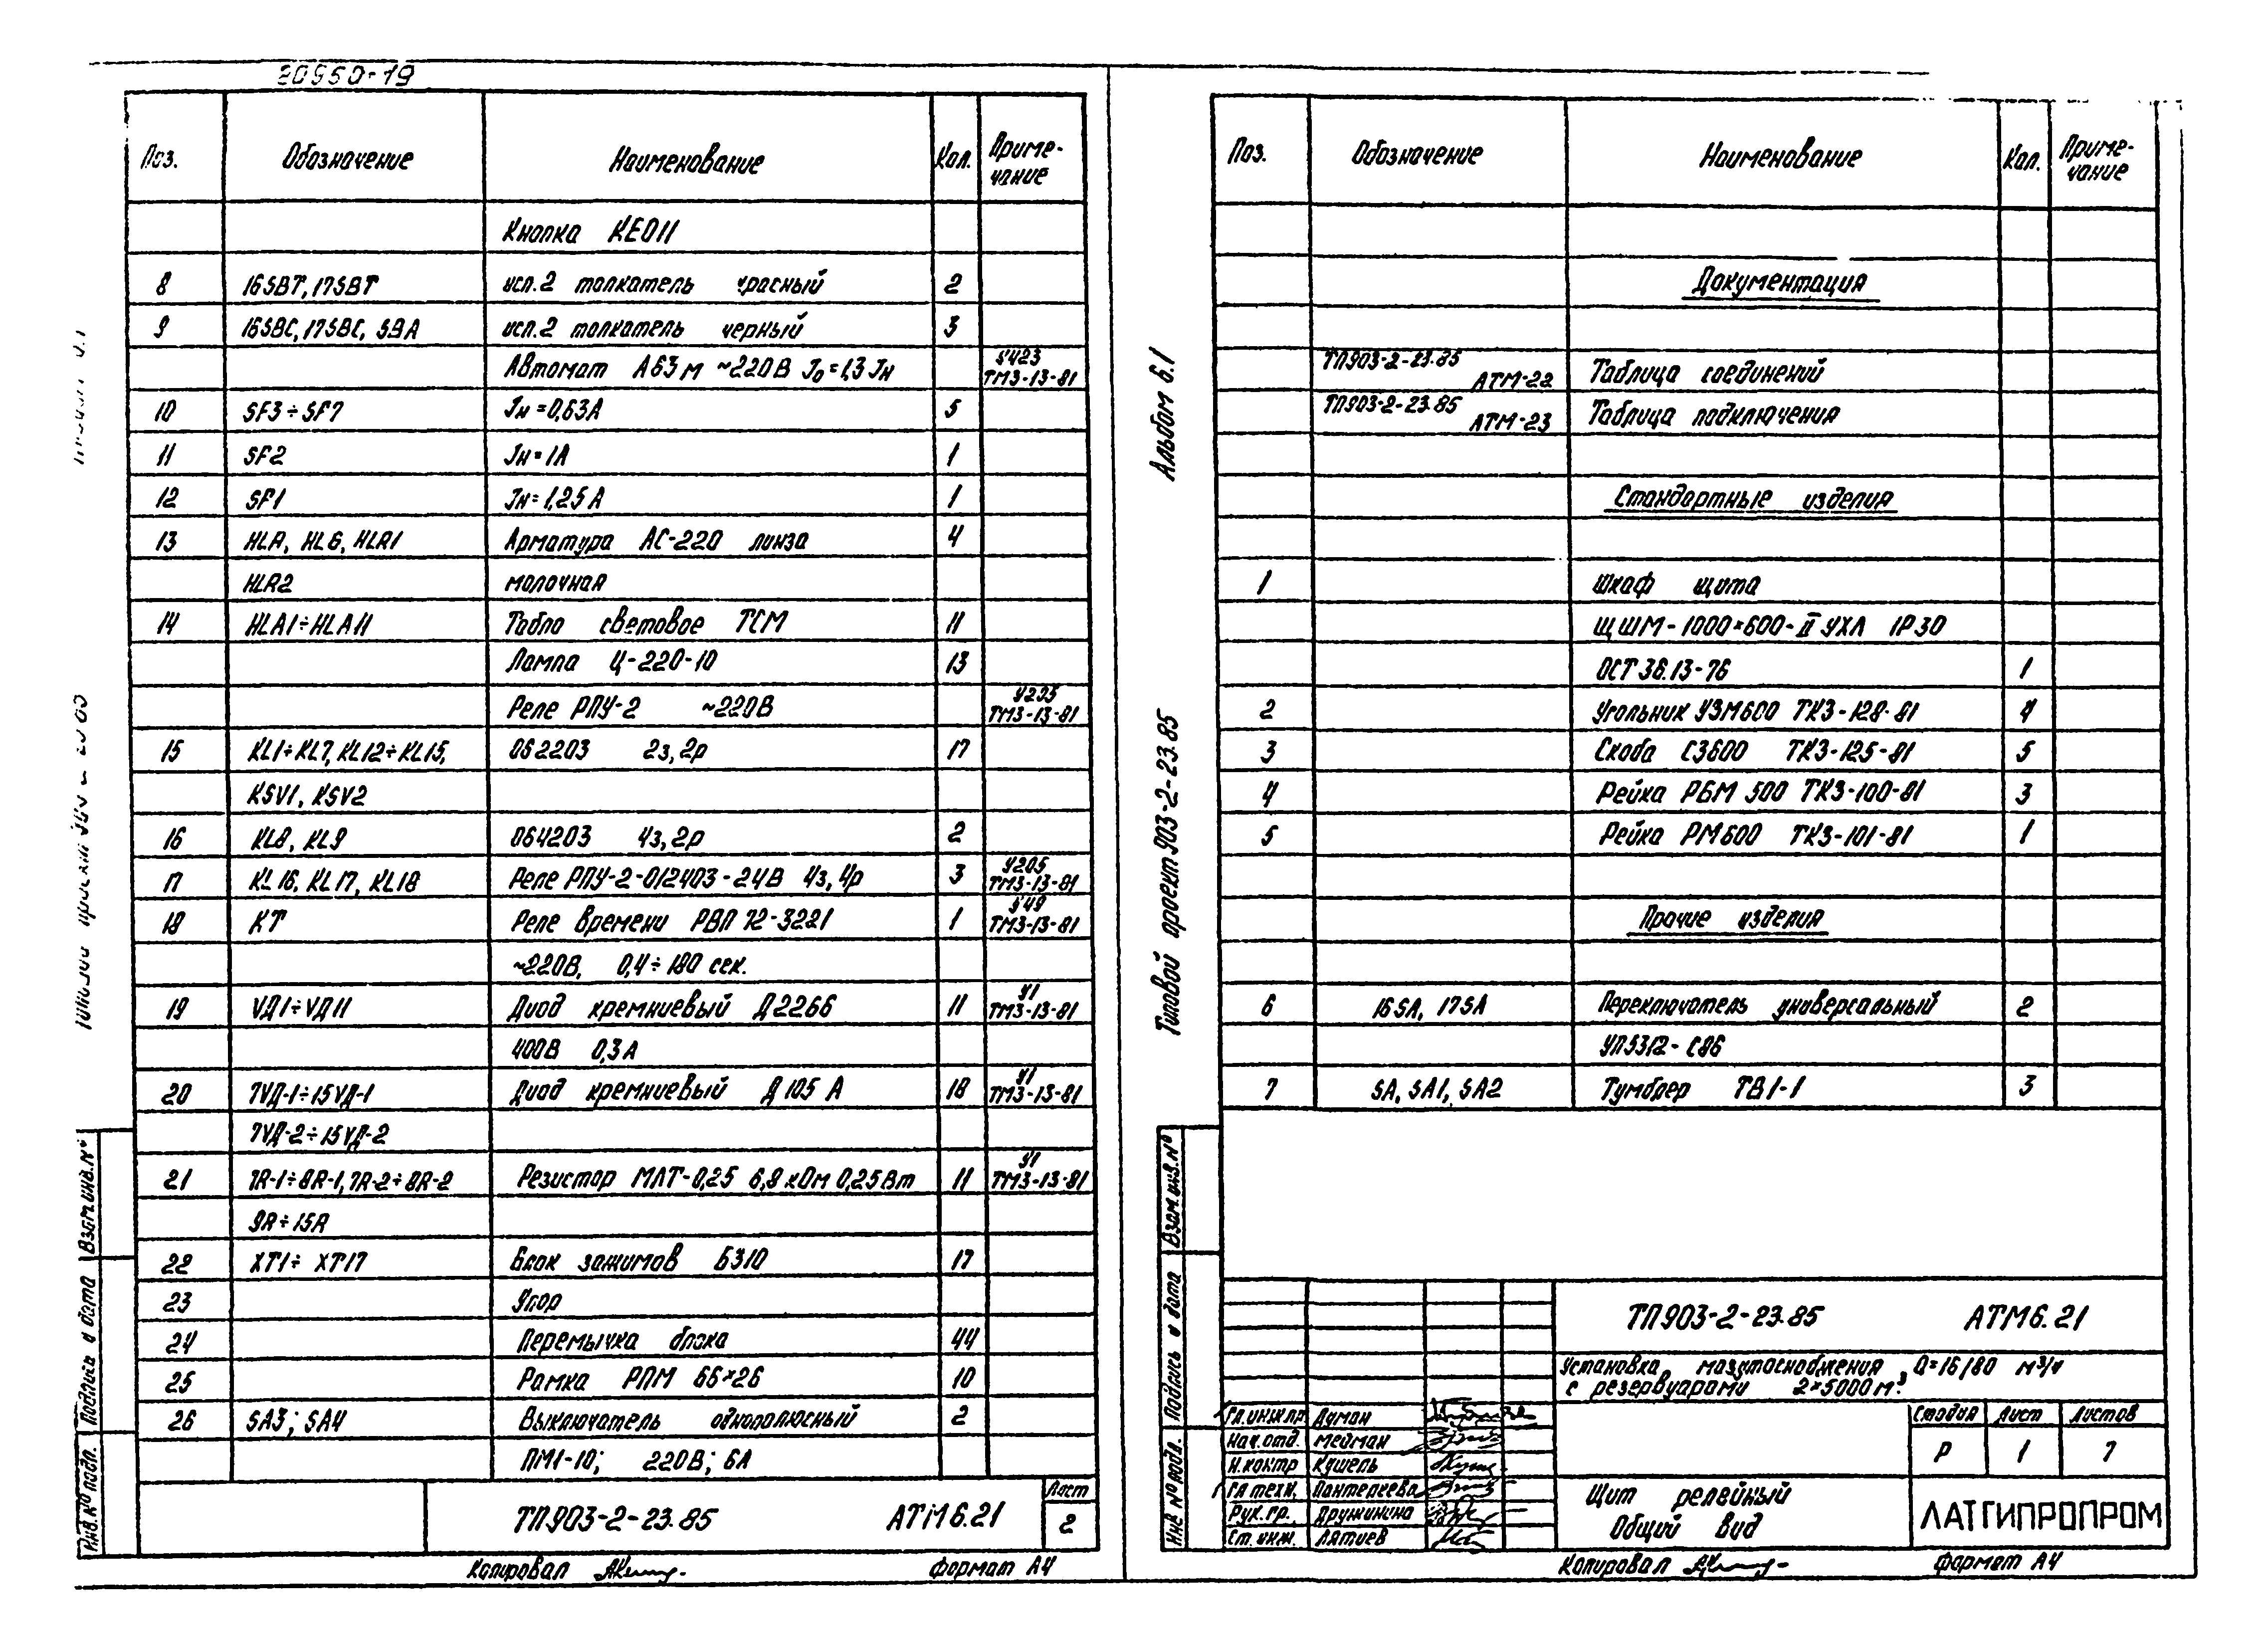 20550-19
Поз. Обозначение Наименование Кол. Приме-
чание
Кнопка КЕ011
8 16SBT, 17SBT исп.2 толкатель красный 2
9 16SBC, 17SBC, SBA исп.2 толкатель черный 3
Автомат А63м ~220В Jо=1,3Jн У423 ТМ3-13-81
10 SF3÷SF7 Jн=0,63А 5
11 SF2 Jн=1А 1
12 SF1 Jн=1,25А 1
13 HLR, HLG, HLR1 Арматура АС-220 линза 4
HLR2 молочная
14 HLA1÷HLA11 Табло световое ТСМ 11
Лампа Ц-220-10 13
Реле РПУ-2 ~220В У205 ТМ3-13-81
15 KL1÷KL7, KL12÷KL15, 062203 2з, 2р 17
KSV1, KSV2
16 KL8, KL9 064203 4з, 2р 2
17 KL16, KL17, KL18 Реле РПУ-2-012403-24В 4з, 4р 3 У205 ТМ3-13-81
18 КТ Реле времени РВП 72-3221 1 У49 ТМ3-13-81
~220В, 0,4÷180 сек.
19 VД1÷VД11 Диод кремниевый Д226Б 11 У1 ТМ3-13-81
400В 0,3А
20 7VД-1÷15VД-1 Диод кремниевый Д105 А 18 У1 ТМ3-13-81
7VД-2÷15VД-2
21 7R-1÷8R-1, 7R-2÷8R-2 Резистор МЛТ-0,25 6,8 кОм 0,25Вт 11 У1 ТМ3-13-81
9R÷15R
22 XT1÷ XT17 Блок зажимов БЗ10 17
23 Упор
24 Перемычка блока 44
25 Рамка РПМ 66×26 10
26 SA3; SA4 Выключатель однополюсный 2
ПМ1-10; 220В; 6А
Взам.инв.№
Подпись и дата
Инв.№ подл.
ТП903-2-23.85 АТМ6.21 Лист
2
Копировал Формат А4
Альбом 6.1
Типовой проект 903-2-23.85
Поз. Обозначение Наименование Кол. Приме-
чание
Документация
ТП903-2-23.85
АТМ-22 Таблица соединений
ТП903-2-23.85
АТМ-23 Таблица подключения
Стандартные изделия
1 Шкаф щита
ЩШМ-1000×600-II УХЛ IP30
ОСТ 36.13-76 1
2 Угольник УЗМ600 ТК3-128-81 4
3 Скоба С3600 ТК3-125-81 5
4 Рейка РБМ 500 ТК3-100-81 3
5 Рейка РМ600 ТК3-101-81 1
Прочие изделия
6 16SA, 17SA Переключатель универсальный 2
УП5312-С86
7 SA, SA1, SA2 Тумблер ТВ1-1 3
Взам.инв.№
Подпись и дата
Инв №подл.
ТП903-2-23.85 АТМ6.21
Установка мазутоснабжения Q=16/80 м³/ч
с резервуарами 2×5000м³.
Гл.инж.пр Думан
Нач.отд. Мейман
Н.контр Кушель
Гл техн. Пантелеева
Рук.гр. Дружинина
Ст.инж. Лятиев
Стадия Лист Листов
Р 1 7
Щит релейный
Общий вид
ЛАТГИПРОПРОМ
Копировал Формат А4